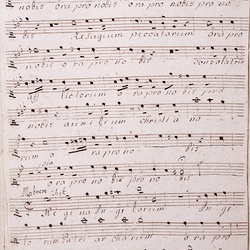 nobis ora pro nobis o ra pro no
bis Refugium peccatorum ora pro
nobis o ra pro no bis consolatrix
aff lictorum o ra pro no bis ora pro
nobis auxilium christi a no
rum o ra pro no bis
o ra pro no bis pro no bis
Re gi na An ge lorum An ge
lorum Patri ar charum o ra pro